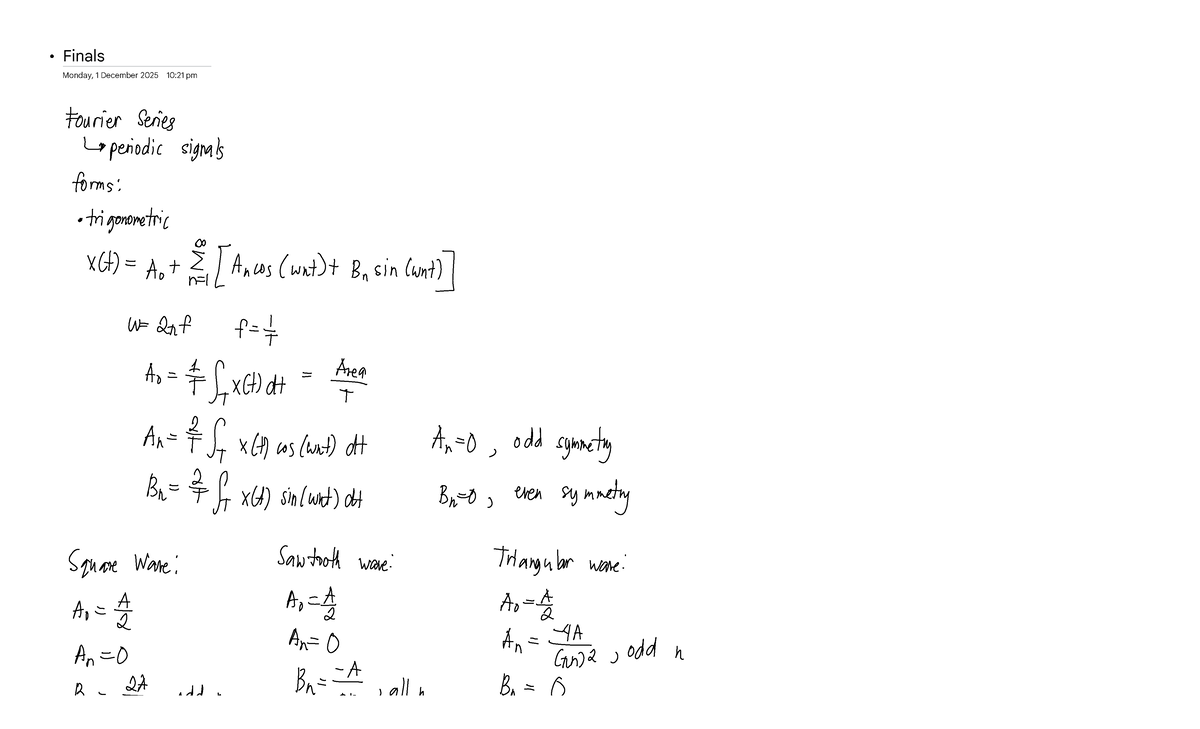 • Finals
Monday, 1 December 2025 10:21 pm
Fourier Series
↳ periodic signals
forms:
• trigonometric
x(t) = A₀ + ∑_{n=1}^{∞} [Aₙ cos (ωnt) + Bₙ sin (ωnt)]
ω = 2πf f = 1/T
A₀ = 1/T ∫_T x(t) dt = Area/T
Aₙ = 2/T ∫_T x(t) cos (ωnt) dt Aₙ=0, odd symmetry
Bₙ = 2/T ∫_T x(t) sin (ωnt) dt Bₙ=0, even symmetry
Square Wave: Sawtooth wave: Triangular wave:
A₀ = A/2 A₀ = A/2 A₀ = A/2
Aₙ = 0 Aₙ = 0 Aₙ = -4A/(πn)2, odd n
2A Bₙ = -A , all n Bₙ = 0